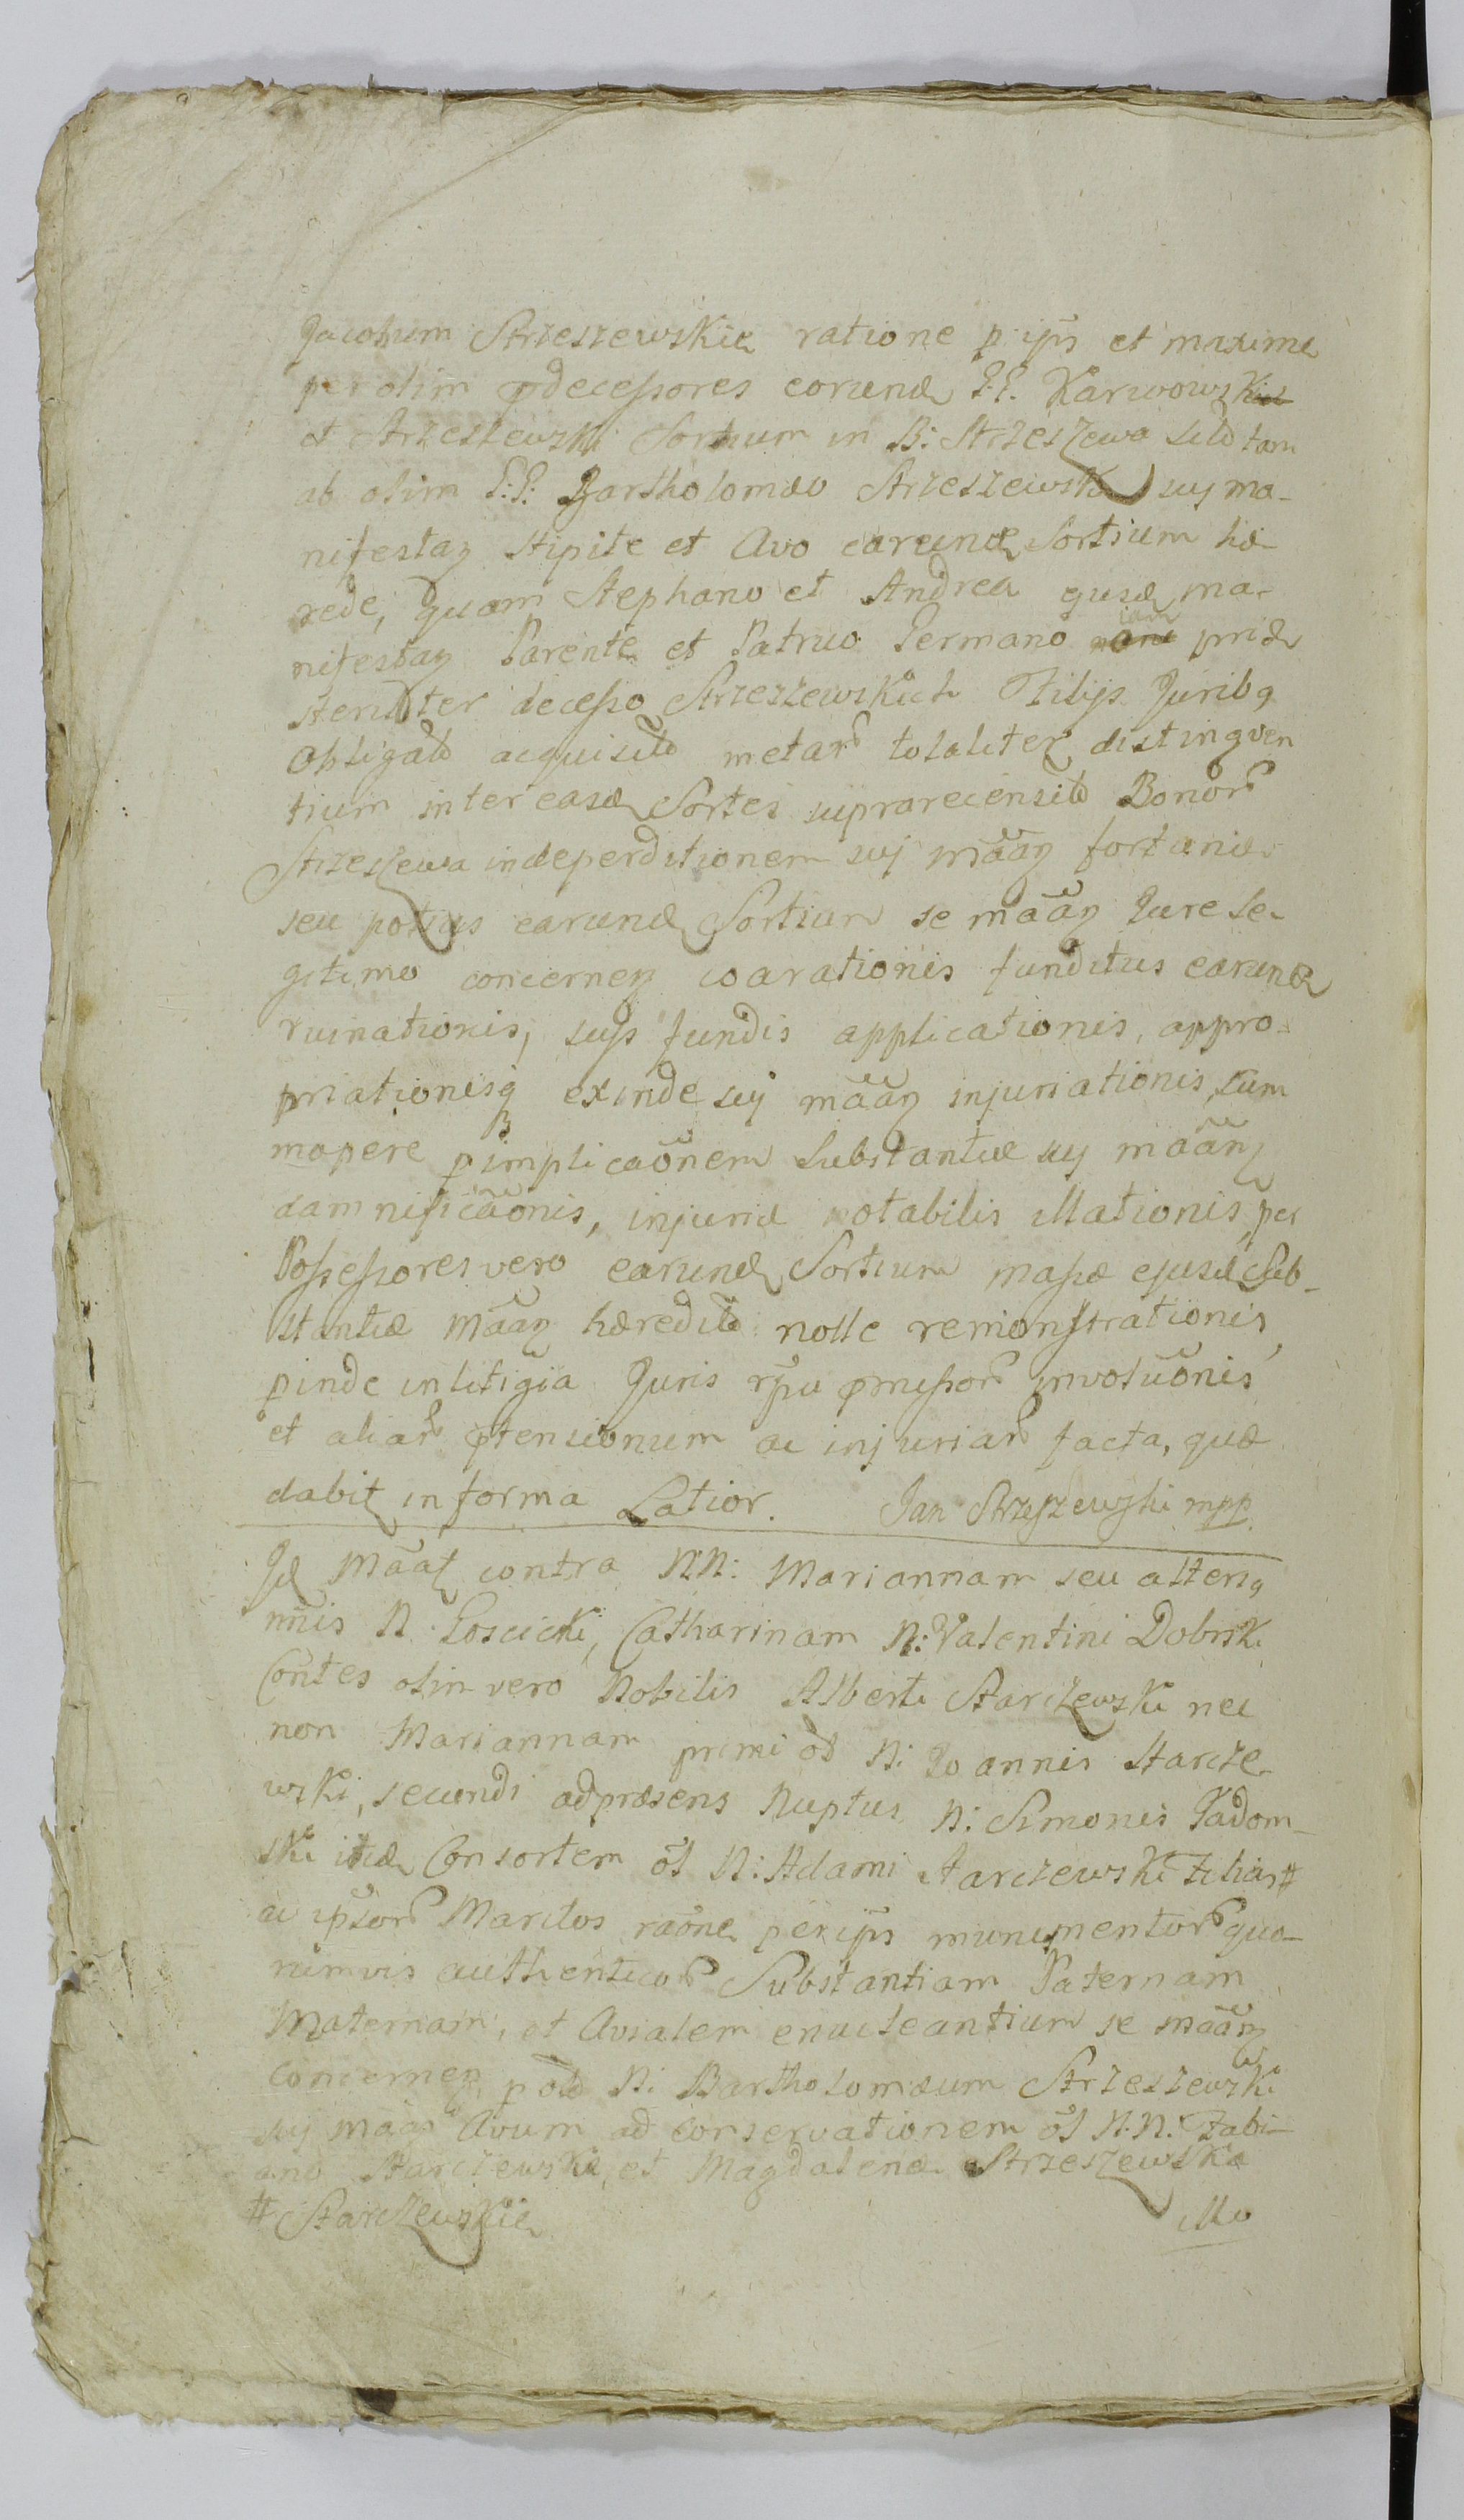 Jacobum Strzeszewskie ratione p ip̃s et maxime
per olim p̃decessores eorund G.G. Karwowskie
et Strzeszewski Sortium in B: Strzeszewo sit̃ tam
ab olim G:G: Bartholomæo Strzeszewski suj ma-
nifestaꝫ Stipite et Avo earund Sortium hæ-
rede, quam Stephano et Andrea ejusd ma-
nifestaꝫ Parente et Patruo Germano iam prid
steriliter decesso Strzeszewskich Filijs Juribꝗ
obligat̃ acquisit̃ metar̃ totaliter distingven
tium inter easd Sortes suprarecensit̃ Bonor̃
Strzeszewa indeperditionem suj mããꝫ fortunæ
seu potius earund Sortium se mããꝫ Jure le-
gitimo concerneꝫ coarationis funditus earund
ruinationis, suis fundis applicationis, appro-
priationisꝗ exinde suj mããꝫ injuriationis, sum
mopere p implicaõnem Substantiæ suj mããꝫ
damnificãõnis, injuriæ notabilis illationis, per
Possessores vero earund Sortium massæ ejusd Sub-
stantiæ mããꝫ heredit̃ nolle remonstrationis,
pinde in litigia Juris rp̃u p̃missor̃ involũõnis
et aliar̃ p̃tensionum ac injuriar̃ facta, quæ
dabit in forma Latior. Jan Strzeszewski mpp
Jd Mããt contra NN: Mariannam seu alteriꝗ
nñis N. Łoscicki, Catharinam N: Valentini Dobrski
Cõntes olim vero Nobilis Alberti Starczewski nec
non Mariannam primi õl N: Joannis Starcze-
wski, secundi ad præsens Nuptus N: Simonis Gadom-
ski itid Consortem õl N: Adami Starczewski Filias #
ac ip̃sor̃ Maritos rãõne per ip̃s munimentor̃ quo-
rumvis authenticor̃ Substantiam Paternam
Maternam, et Avialem enucleantium se mããꝫ
concerneꝫ p õl N: Bartholomæum Strzeszewski
suj mããꝫ Avum ad conservationem õl N.N. Fabi-
ano Starczewski, et Magdalenæ Strzeszewskæ
# Starczewskie
illo